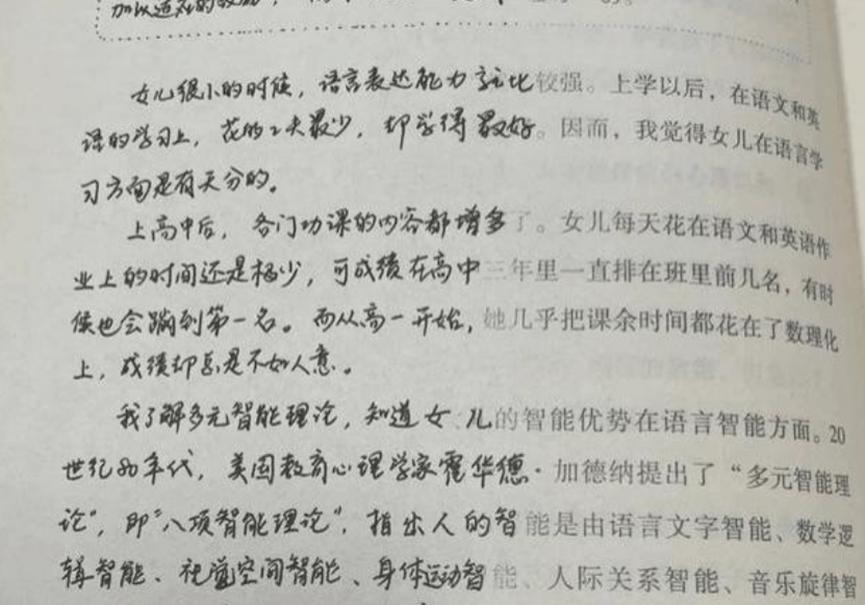 加以适
女儿很小的时候，语言表达能力就比较强。上学以后，在语文和英
课的学习上，花的工夫最少，却学得最好。因而，我觉得女儿在语言学
习方面是有天分的。
上高中后，各门功课的内容都增多了。女儿每天花在语文和英语作
业上的时间还是极少，可成绩在高中三年里一直排在班里前几名，有时
候也会蹦到第一名。而从高一开始，她几乎把课余时间都花在了数理化
上，成绩却总是不如人意。
我了解多元智能理论，知道女儿的智能优势在语言智能方面。20
世纪80年代，美国教育心理学家霍华德·加德纳提出了“多元智能理
论”，即“八项智能理论”，指出人的智能是由语言文字智能、数学逻
辑智能、视觉空间智能、身体运动智能、人际关系智能、音乐旋律智